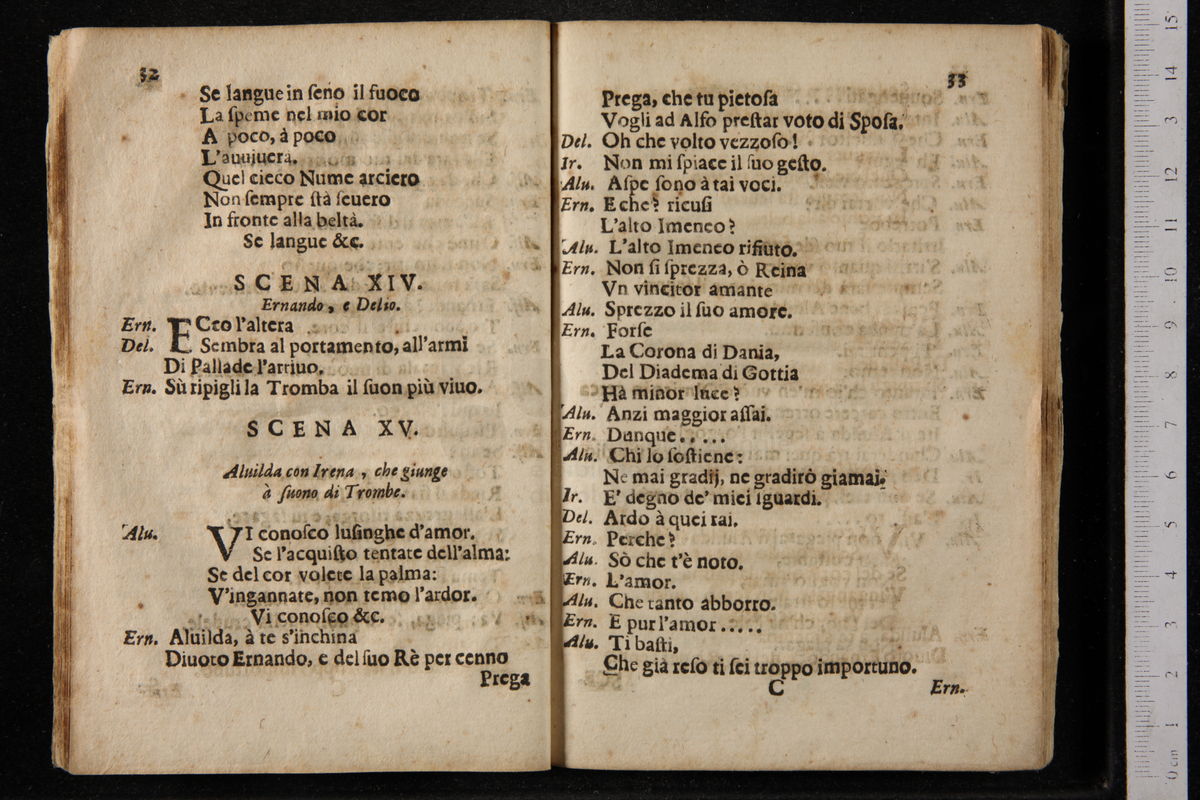 32
Se langue in ſeno il fuoco
La ſpeme nel mio cor
A poco, à poco
L'auuiuerà.
Quel cieco Nume arciero
Non ſempre ſtà ſeuero
In fronte alla beltà.
Se langue &c.
SCENA XIV.
Ernando, e Delio.
Ern. ECco l'altera
Del. Sembra al portamento, all'armi
Di Pallade l'arriuo.
Ern. Sù ripigli la Tromba il ſuon più viuo.
SCENA XV.
Aluilda con Irena, che giunge
à ſuono di Trombe.
Alu. VI conoſco luſinghe d'amor.
Se l'acquiſto tentate dell'alma:
Se del cor volete la palma:
V'ingannate, non temo l'ardor.
Vi conoſco &c.
Ern. Aluilda, à te s'inchina
Diuoto Ernando, e del ſuo Rè per cenno
Prega
33
Prega, che tu pietoſa
Vogli ad Alfo preſtar voto di Spoſa.
Del. Oh che volto vezzoſo!
Ir. Non mi ſpiace il ſuo geſto.
Alu. Aſpe ſono à tai voci.
Ern. E che? ricuſi
L'alto Imeneo?
Alu. L'alto Imeneo rifiuto.
Ern. Non ſi ſprezza, ò Reina
Vn vincitor amante
Alu. Sprezzo il ſuo amore.
Ern. Forſe
La Corona di Dania,
Del Diadema di Gottia
Ha minor luce?
Alu. Anzi maggior aſſai.
Ern. Dunque.....
Alu. Chi lo ſoſtiene:
Ne mai gradij, ne gradirò giamai.
Ir. E' degno de' miei ſguardi.
Del. Ardo à quei rai.
Ern. Perche?
Alu. Sò che t'è noto.
Ern. L'amor.
Alu. Che tanto abborro.
Ern. E pur l'amor.....
Alu. Ti baſti,
Che già reſo ti ſei troppo importuno.
C Ern.
0 cm 1 2 3 4 5 6 7 8 9 10 11 12 3 14 15